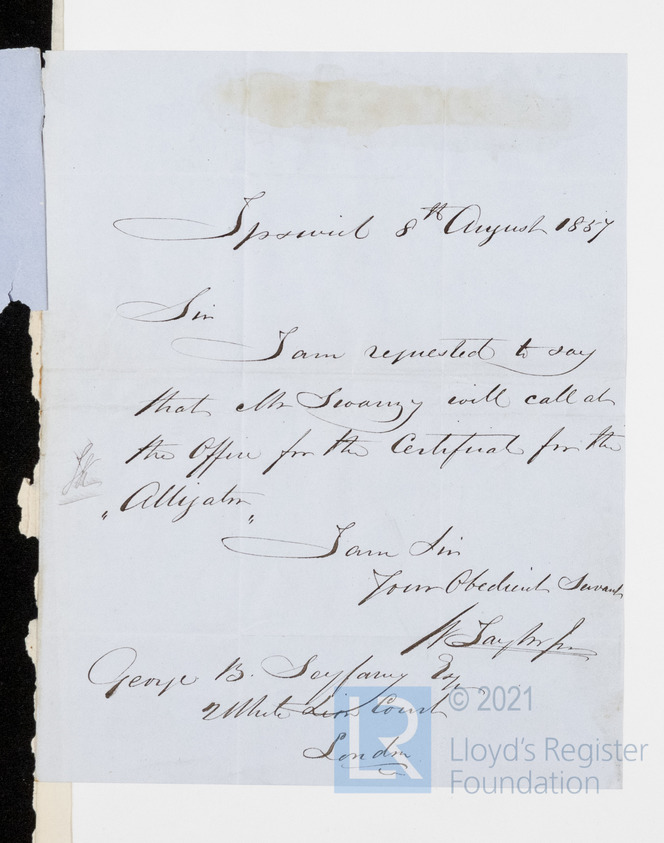 Ipswich 8th August 1857
Sir
I am requested to say
that Mr Swanzy will call at
the Office for the Certificate for the
"Alligator"
I am Sir
Your Obedient Servant
W Taylor Jnr
George B. Seyfang Esq
2 White Lion Court
London
© 2021
LR
Lloyd's Register
Foundation